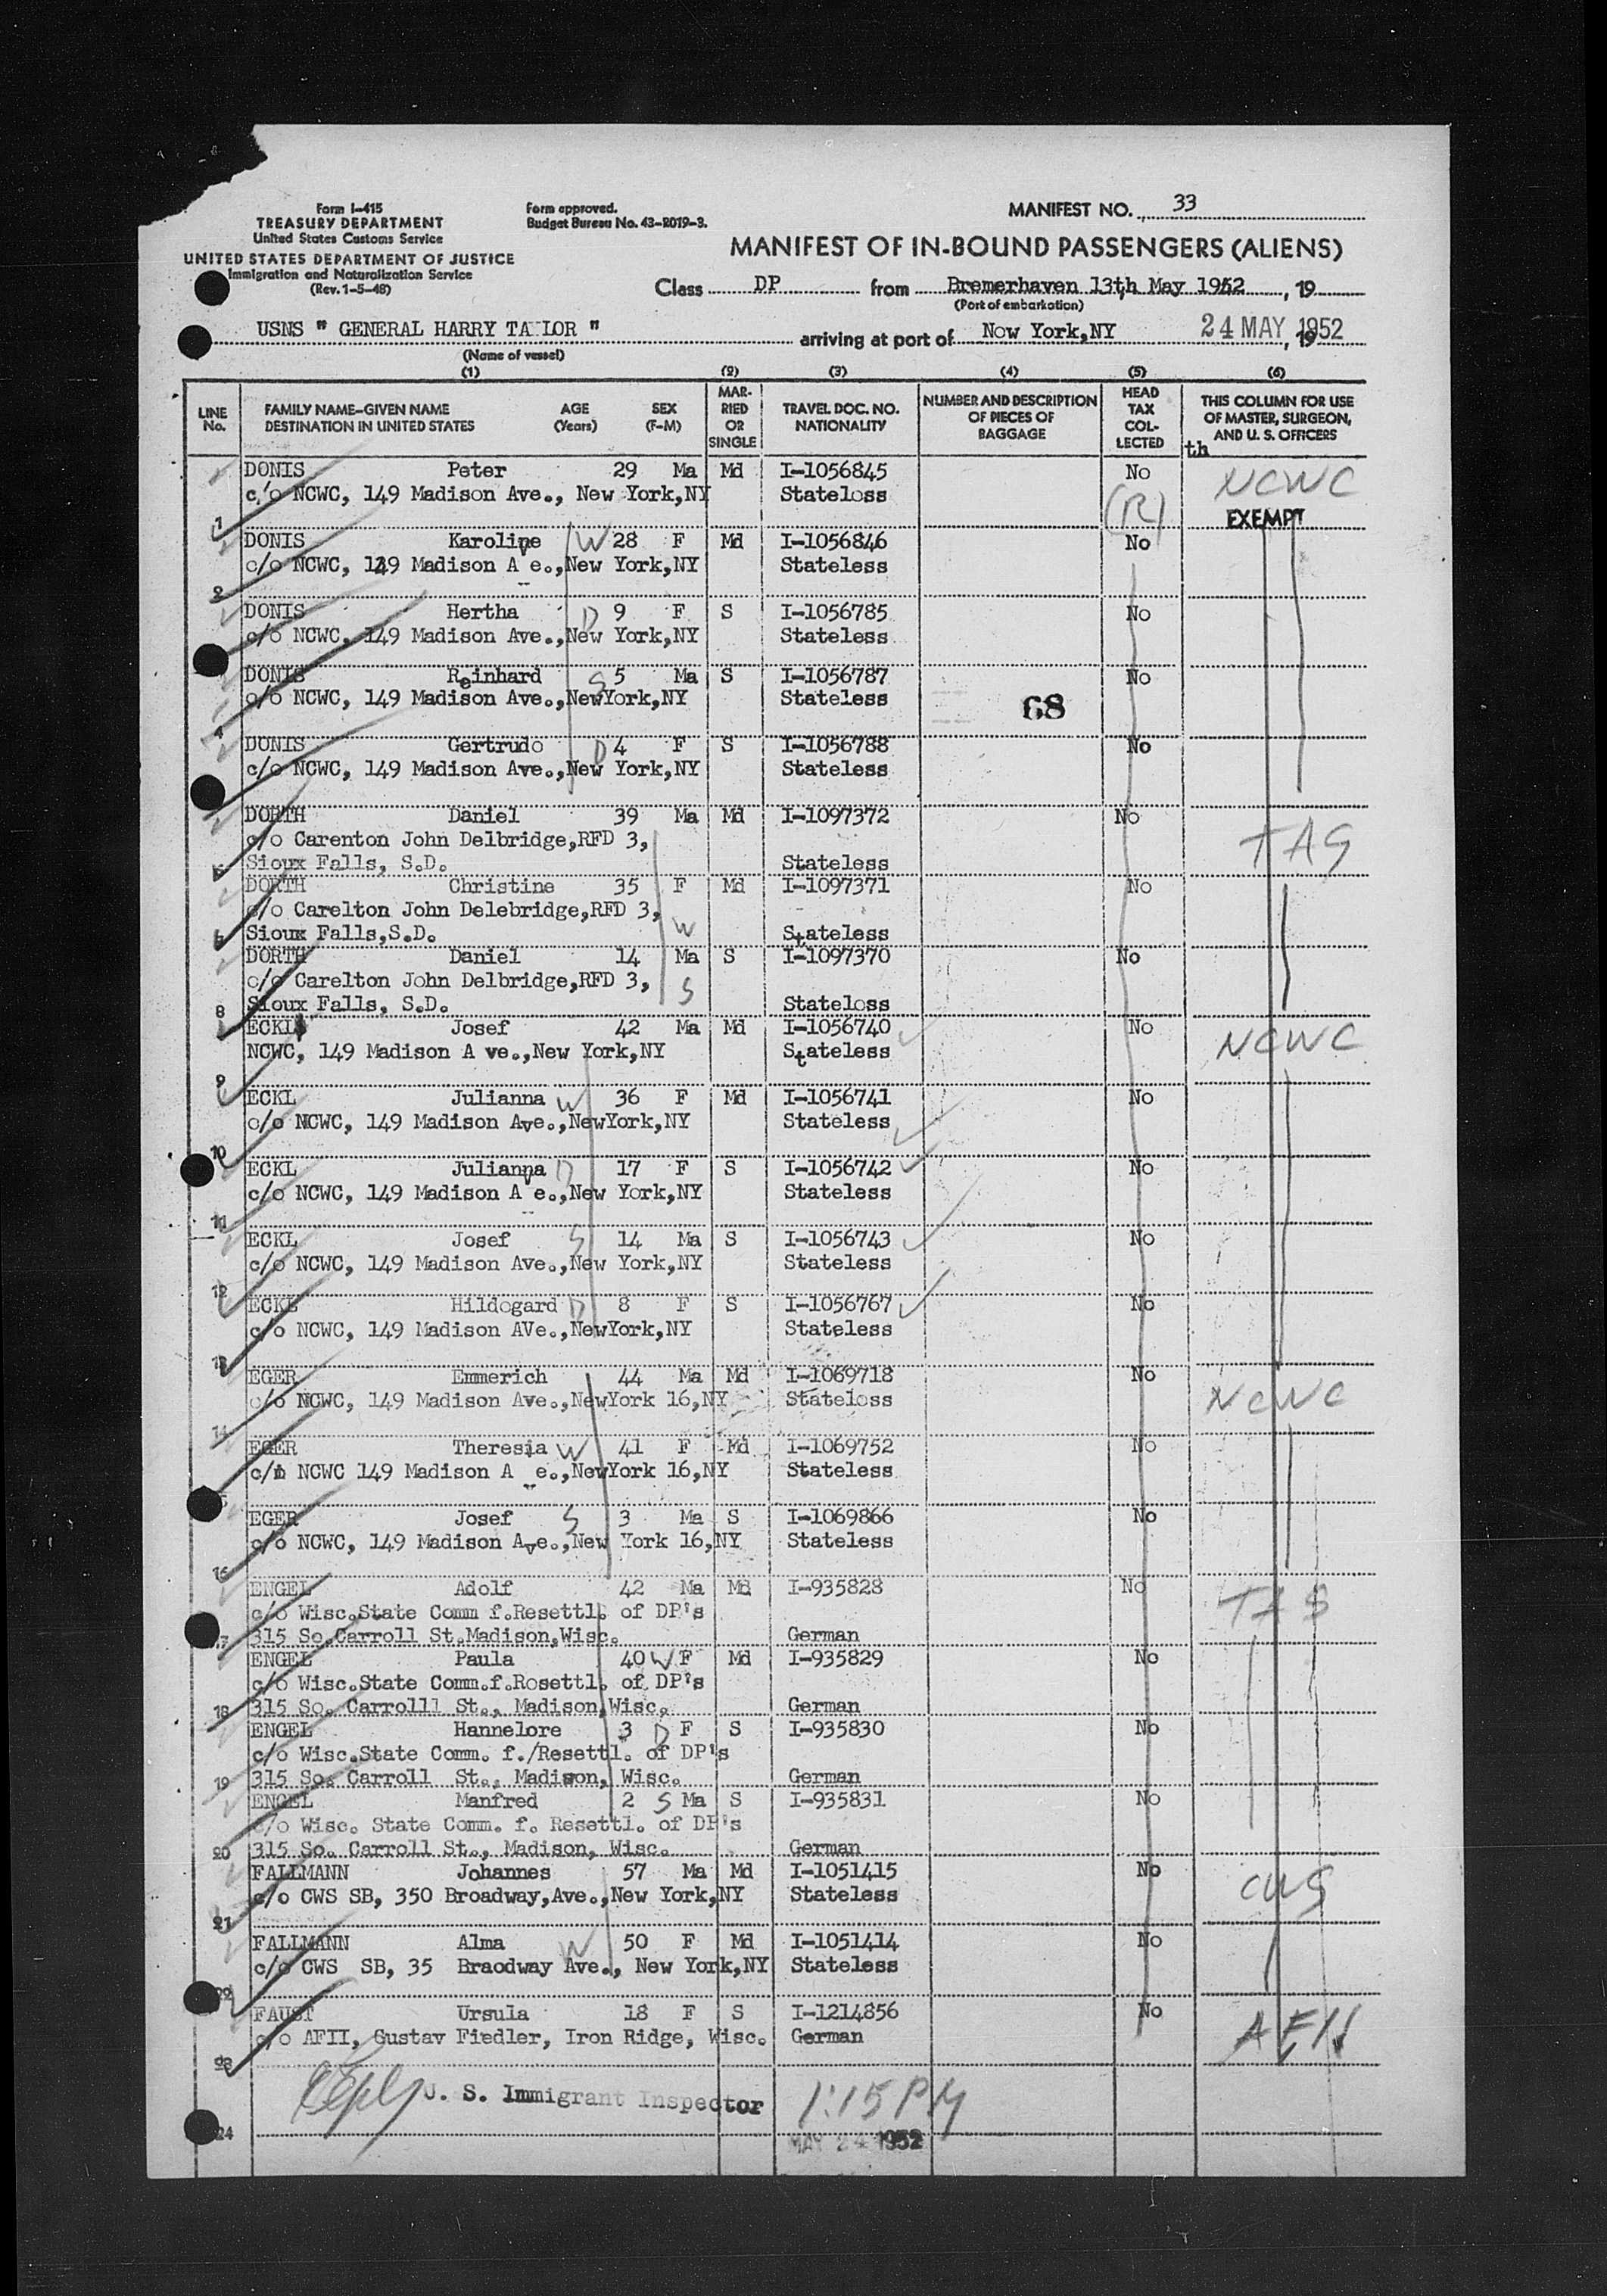 Form I-415
TREASURY DEPARTMENT
United States Customs Service
UNITED STATES DEPARTMENT OF JUSTICE
Immigration and Naturalization Service
(Rev. 1-5-48)
Form approved.
Budget Bureau No. 43-R019-3.
MANIFEST NO. 33
MANIFEST OF IN-BOUND PASSENGERS (ALIENS)
Class DP from Bremerhaven 13th May 1952, 19
(Port of embarkation)
USNS " GENERAL HARRY TAYLOR " arriving at port of New York,NY 24 MAY 1952, 19
(Name of vessel)
(1) (2) (3) (4) (5) (6)
LINE No. FAMILY NAME-GIVEN NAME DESTINATION IN UNITED STATES AGE (Years) SEX (F-M) MARRIED OR SINGLE TRAVEL DOC. NO. NATIONALITY NUMBER AND DESCRIPTION OF PIECES OF BAGGAGE HEAD TAX COLLECTED THIS COLUMN FOR USE OF MASTER, SURGEON, AND U. S. OFFICERS
th
DONIS Peter 29 Ma Md I-1056845 No NCWC
c/o NCWC, 149 Madison Ave., New York,NY Stateless (R)
1 EXEMPT
DONIS Karoline W 28 F Md I-1056846 No
c/o NCWC, 149 Madison A e.,New York,NY Stateless
2
DONIS Hertha D 9 F S I-1056785 No
c/o NCWC, 149 Madison Ave.,New York,NY Stateless
DONIS Reinhard S 5 Ma S I-1056787 No
c/o NCWC, 149 Madison Ave.,NewYork,NY Stateless 68
4
DONIS Gertrude D 4 F S I-1056788 No
c/o NCWC, 149 Madison Ave.,New York,NY Stateless
DORTH Daniel 39 Ma Md I-1097372 No
c/o Carenton John Delbridge,RFD 3, TAS
6 Sioux Falls, S.D. Stateless
DORTH Christine 35 F Md I-1097371 No
c/o Carelton John Delebridge,RFD 3, W
Sioux Falls,S.D. Stateless
DORTH Daniel 14 Ma S I-1097370 No
c/o Carelton John Delbridge,RFD 3, S
8 Sioux Falls, S.D. Stateless
ECKL Josef 42 Ma Md I-1056740 No NCWC
NCWC, 149 Madison A ve.,New York,NY Stateless
9
ECKL Julianna W 36 F Md I-1056741 No
c/o NCWC, 149 Madison Ave.,NewYork,NY Stateless
10
ECKL Julianna D 17 F S I-1056742 No
c/o NCWC, 149 Madison A e.,New York,NY Stateless
11
ECKL Josef S 14 Ma S I-1056743 No
c/o NCWC, 149 Madison Ave.,New York,NY Stateless
12
ECKL Hildegard D 8 F S I-1056767 No
c/o NCWC, 149 Madison AVe.,NewYork,NY Stateless
13
EGER Emmerich 44 Ma Md I-1069718 No
c/o NCWC, 149 Madison Ave.,NewYork 16,NY Stateless NCWC
14
EGER Theresia W 41 F Md I-1069752 No
c/o NCWC 149 Madison A e.,NewYork 16,NY Stateless
EGER Josef S 3 Ma S I-1069866 No
c/o NCWC, 149 Madison Ave.,New York 16,NY Stateless
16
ENGEL Adolf 42 Ma Md I-935828 No
c/o Wisc.State Comm f.Resettl. of DP's TAS
17 315 So.Carroll St.Madison,Wisc. German
ENGEL Paula 40 W F Md I-935829 No
c/o Wisc.State Comm.f.Resettl. of DP's
18 315 So. Carrolll St., Madison,Wisc. German
ENGEL Hannelore 3 D F S I-935830 No
c/o Wisc.State Comm. f./Resettl. of DP's
19 315 So. Carroll St., Madison, Wisc. German
ENGEL Manfred 2 S Ma S I-935831 No
c/o Wisc. State Comm. f. Resettl. of DP's
20 315 So. Carroll St., Madison, Wisc. German
FALLMANN Johannes 57 Ma Md I-1051415 No
c/o CWS SB, 350 Broadway,Ave.,New York,NY Stateless CWS
21
FALLMANN Alma W 50 F Md I-1051414 No
c/o CWS SB, 35 Braodway Ave., New York,NY Stateless
22
FAUST Ursula 18 F S I-1214856 No
c/o AFII, Gustav Fiedler, Iron Ridge, Wisc. German
23
U. S. Immigrant Inspector 1:15 PM
24 MAY 24 1952